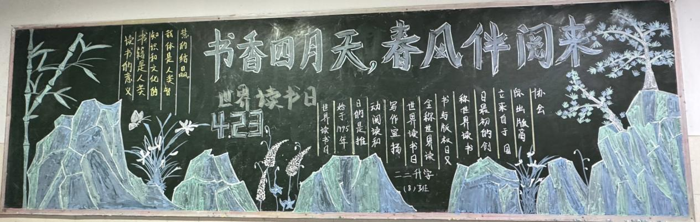 书香四月天，春风伴阅来
世界读书日
423
读书的意义
书籍是人类
知识和文化的
载体是人类智
慧的结晶
世界读书日
始于1995年
日的是推
动阅读和
写作宣扬
世界读书日
全称世界读
书与版权日又
称世界读书
日最初的创
立来自于国
际出版商
协会
二二升学
(3)班